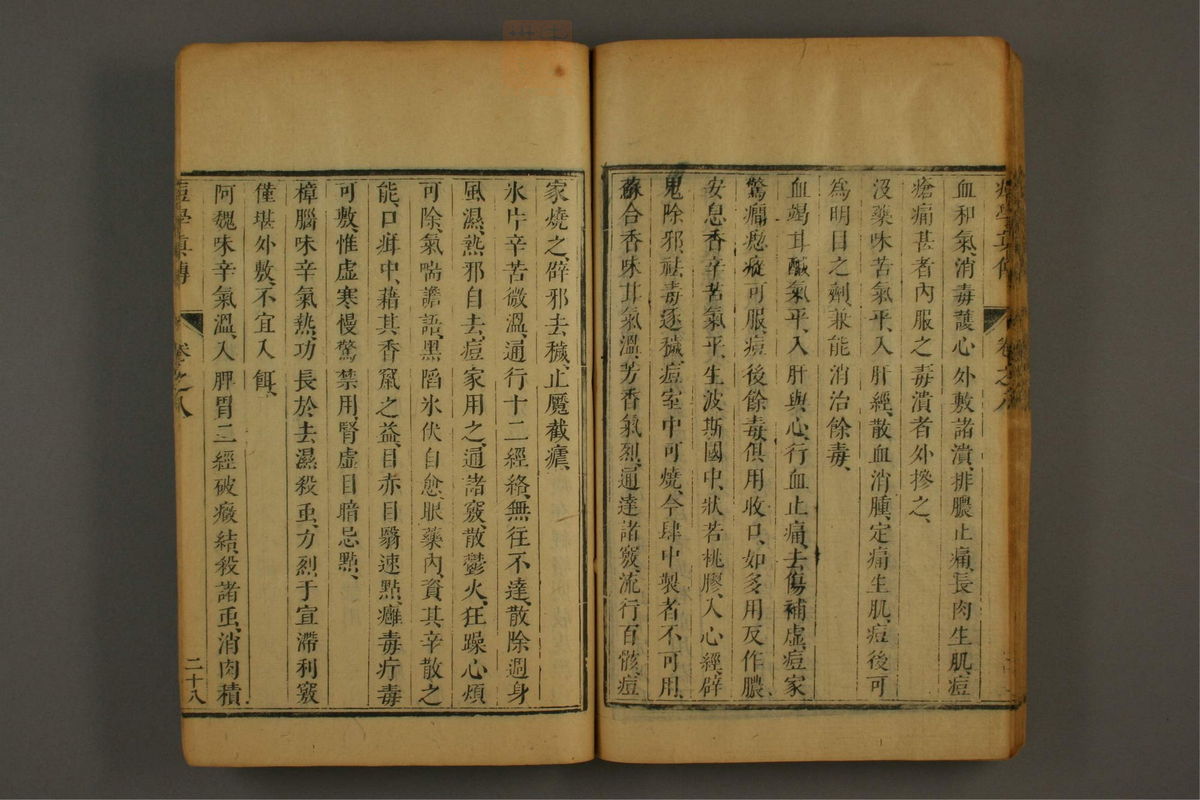 痘學真傳 卷之八
血和氣、消毒護心、外敷諸潰、排膿止痛、長肉生肌、痘
瘡痛甚者內服之、毒潰者外摻之、
沒藥味苦氣平、入肝經、散血消腫、定痛生肌、痘後可
爲明目之劑、兼能消治餘毒、
血竭甘鹹氣平、入肝與心、行血止痛、去傷補虛、痘家
驚癇瘛瘲可服、痘後餘毒、俱用收口、如多用反作膿、
安息香辛苦氣平、生波斯國中、狀若桃膠、入心經、辟
鬼除邪、祛毒逐穢、痘室中可燒、今肆中製者不可用、
蘇合香味甘氣溫、芳香氣烈、通達諸竅、流行百骸、痘
家燒之、辟邪去穢、止魘截瘧、
氷片辛苦微溫、通行十二經絡、無往不達、散除週身
風濕、熱邪自去、痘家用之、通諸竅、散鬱火、狂躁心煩
可除、氣喘譫語、黑陷氷伏自愈、眼藥內、資其辛散之
能、口疳中、藉其香竄之益、目赤目翳速點、癰毒疔毒
可敷、惟虛寒慢驚禁用、腎虛目暗忌點、
樟腦味辛氣熱、功長於去濕殺虫、方烈于宣滯利竅
僅堪外敷、不宜入餌、
阿魏味辛氣溫、入脾胃二經、破癥結、殺諸虫、消肉積
痘學真傳 卷之八 二十八